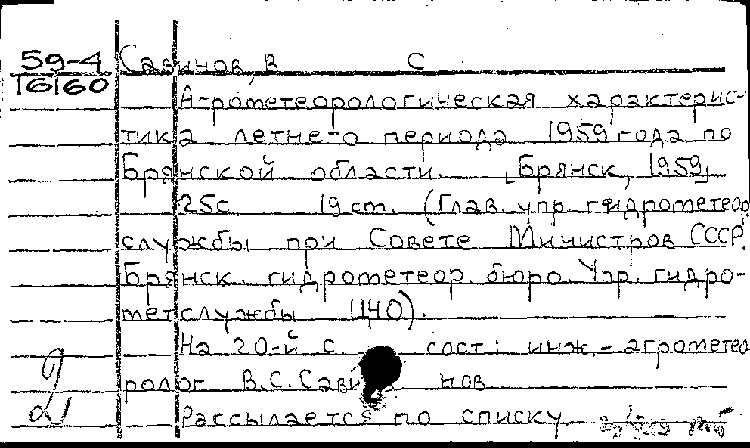 59-4 Савинов, В С
16160
Агрометеорологическая характерис-
тика летнего периода 1959 года по
Брянской области. [Брянск, 1959]
25с. 19 cm. (Глав. упр. гидрометеор
службы при Совете Министров СССР.
Брянск. гидрометеор. бюро. Упр. гидро-
метслужбы (140).
На 20-й с. сост: инж.-агрометео
ролог В.С. Савинов
Рассылается по списку
2